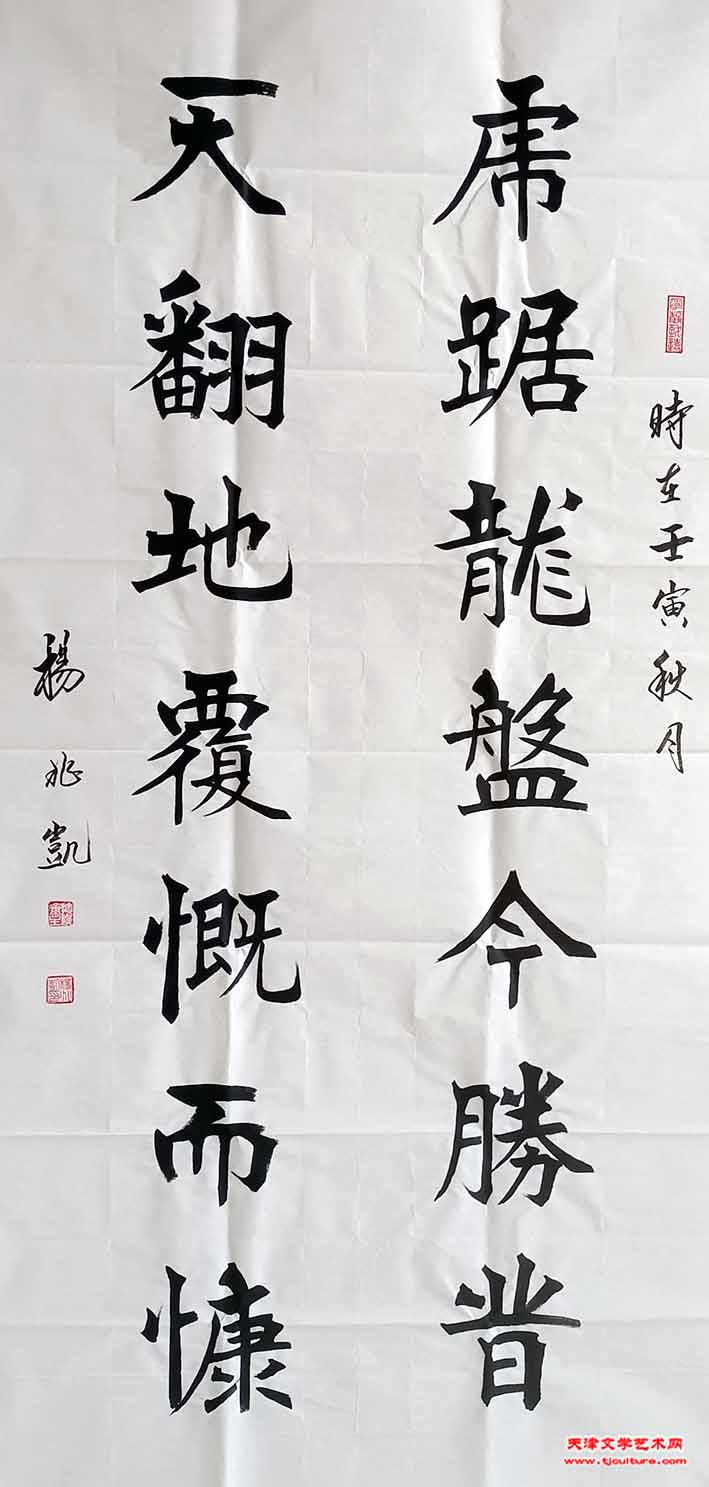 時在壬寅秋月
虎踞龍盤今勝昔
天翻地覆慨而慷
楊兆凱
天津文学艺术网
www.tjculture.com